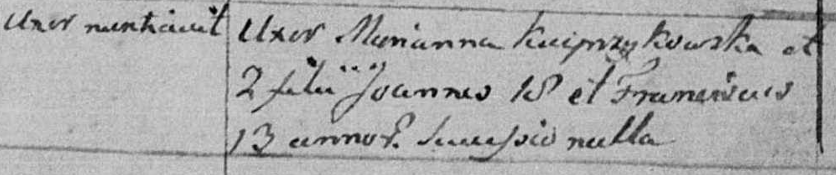 Uxor nuntiavit
Uxor Marianna Kacprzykowska et
2 filii Joannes 18 et Franciscus
13 annor. Successio nulla